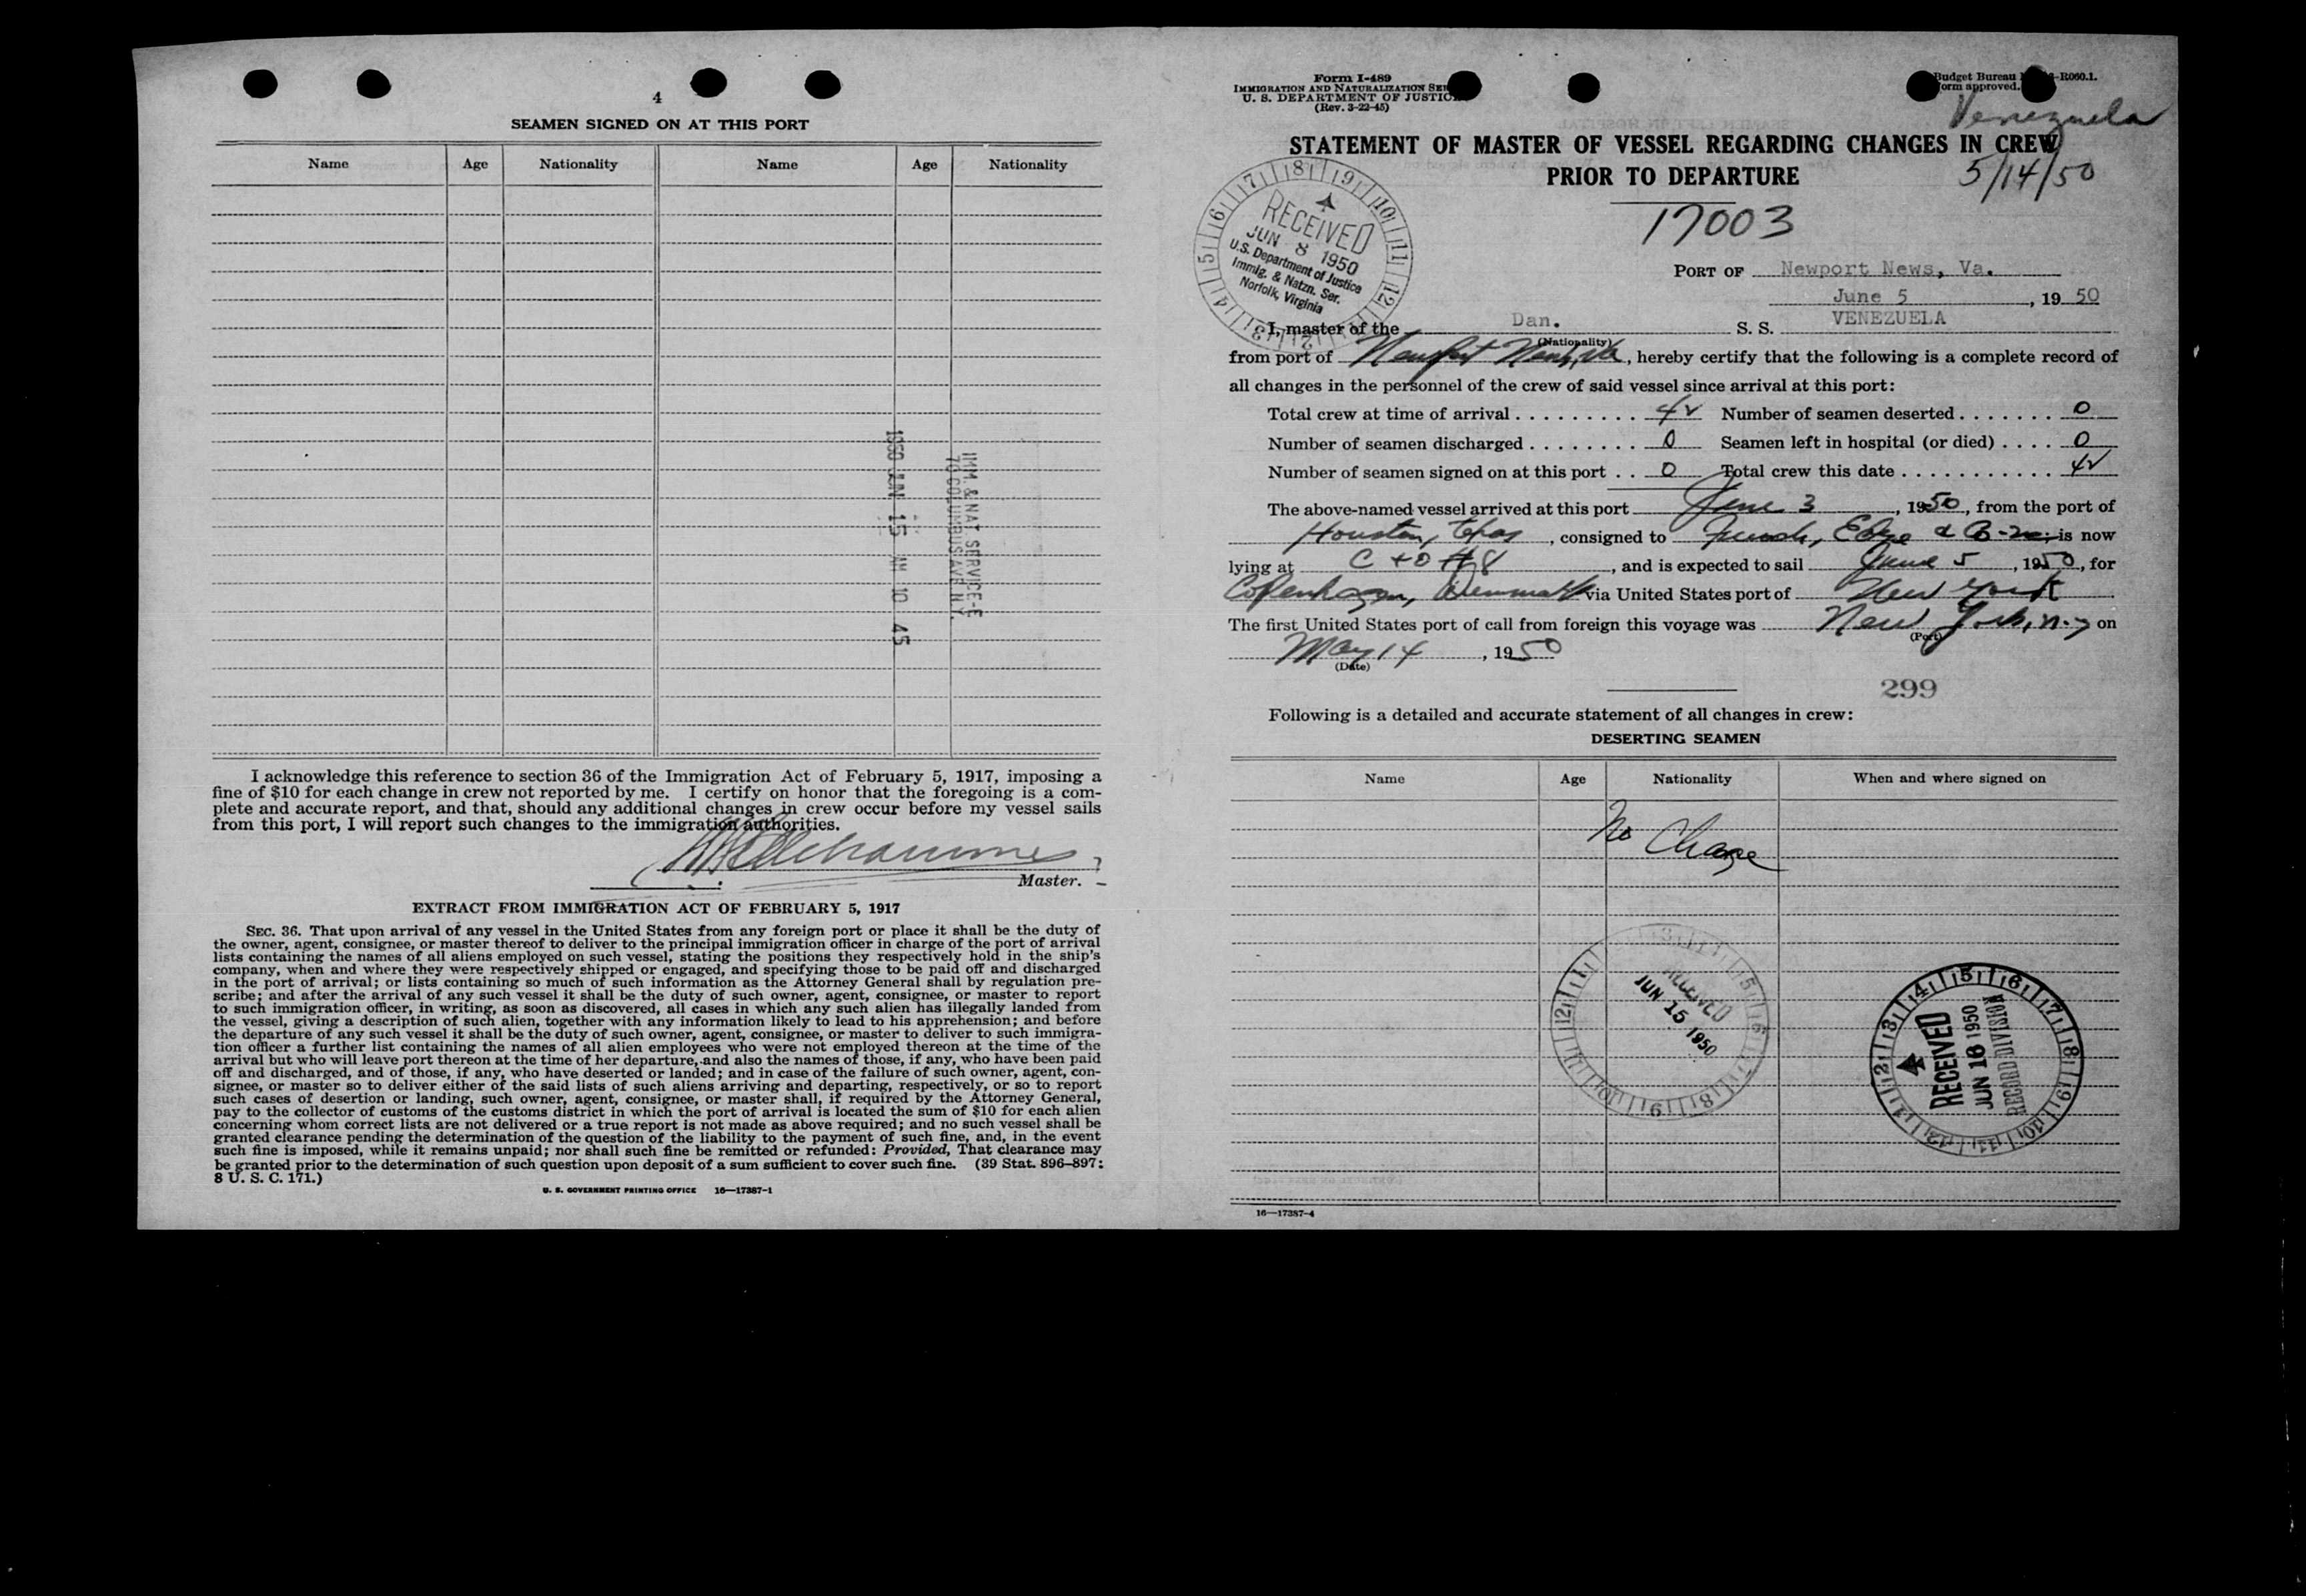 4
SEAMEN SIGNED ON AT THIS PORT
Name Age Nationality Name Age Nationality
IMM & NAT SERVICE-E
70 COLUMBUS AVE N.Y.
1950 JUN 15 AM 10 45
I acknowledge this reference to section 36 of the Immigration Act of February 5, 1917, imposing a
fine of $10 for each change in crew not reported by me. I certify on honor that the foregoing is a com-
plete and accurate report, and that, should any additional changes in crew occur before my vessel sails
from this port, I will report such changes to the immigration authorities.
Master.
EXTRACT FROM IMMIGRATION ACT OF FEBRUARY 5, 1917
SEC. 36. That upon arrival of any vessel in the United States from any foreign port or place it shall be the duty of
the owner, agent, consignee, or master thereof to deliver to the principal immigration officer in charge of the port of arrival
lists containing the names of all aliens employed on such vessel, stating the positions they respectively hold in the ship's
company, when and where they were respectively shipped or engaged, and specifying those to be paid off and discharged
in the port of arrival; or lists containing so much of such information as the Attorney General shall by regulation pre-
scribe; and after the arrival of any such vessel it shall be the duty of such owner, agent, consignee, or master to report
to such immigration officer, in writing, as soon as discovered, all cases in which any such alien has illegally landed from
the vessel, giving a description of such alien, together with any information likely to lead to his apprehension; and before
the departure of any such vessel it shall be the duty of such owner, agent, consignee, or master to deliver to such immigra-
tion officer a further list containing the names of all alien employees who were not employed thereon at the time of the
arrival but who will leave port thereon at the time of her departure, and also the names of those, if any, who have been paid
off and discharged, and of those, if any, who have deserted or landed; and in case of the failure of such owner, agent, con-
signee, or master so to deliver either of the said lists of such aliens arriving and departing, respectively, or so to report
such cases of desertion or landing, such owner, agent, consignee, or master shall, if required by the Attorney General,
pay to the collector of customs of the customs district in which the port of arrival is located the sum of $10 for each alien
concerning whom correct lists are not delivered or a true report is not made as above required; and no such vessel shall be
granted clearance pending the determination of the question of the liability to the payment of such fine, and, in the event
such fine is imposed, while it remains unpaid; nor shall such fine be remitted or refunded: Provided, That clearance may
be granted prior to the determination of such question upon deposit of a sum sufficient to cover such fine. (39 Stat. 896–897;
8 U. S. C. 171.)
U. S. GOVERNMENT PRINTING OFFICE 16—17387-1
Form I-489
IMMIGRATION AND NATURALIZATION
U. S. DEPARTMENT OF JUSTICE
(Rev. 3-22-45)
Budget Bureau -R060.1.
Form approved.
Venezuela
STATEMENT OF MASTER OF VESSEL REGARDING CHANGES IN CREW
PRIOR TO DEPARTURE
5/14/50
17003
RECEIVED
JUN 8 1950
U.S. Department of Justice
Immig. & Natzn. Ser.
Norfolk, Virginia
PORT OF Newport News, Va.
June 5, 1950
I, master of the Dan. S. S. VENEZUELA
(Nationality)
from port of Newport News, Va, hereby certify that the following is a complete record of
all changes in the personnel of the crew of said vessel since arrival at this port:
Total crew at time of arrival . . . . . . . . . 42 Number of seamen deserted . . . . . . . 0
Number of seamen discharged . . . . . . . . 0 Seamen left in hospital (or died) . . . . 0
Number of seamen signed on at this port . . 0 Total crew this date . . . . . . . . . . . . 42
The above-named vessel arrived at this port June 3, 1950, from the port of
Houston, Texas, consigned to Funch, Edye & Co. is now
lying at C + O #8, and is expected to sail June 5, 1950, for
Copenhagen, Denmark via United States port of New York
The first United States port of call from foreign this voyage was New York, N.Y. on
(Port)
May 14, 1950
(Date)
299
Following is a detailed and accurate statement of all changes in crew:
DESERTING SEAMEN
Name Age Nationality When and where signed on
No Change
RECEIVED
JUN 15 1950
RECEIVED
JUN 16 1950
RECORD DIVISION
16—17387-4